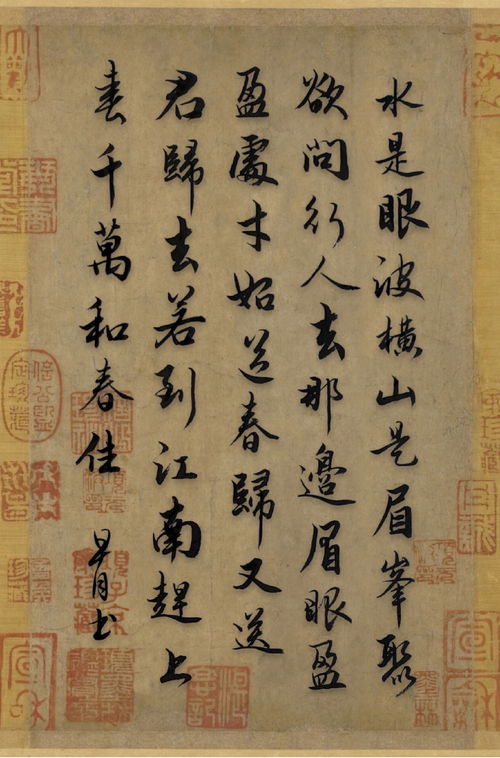 水是眼波橫山是眉峯聚
欲問行人去那邊眉眼盈
盈處才始送春歸又送
君歸去若到江南趕上
春千萬和春住